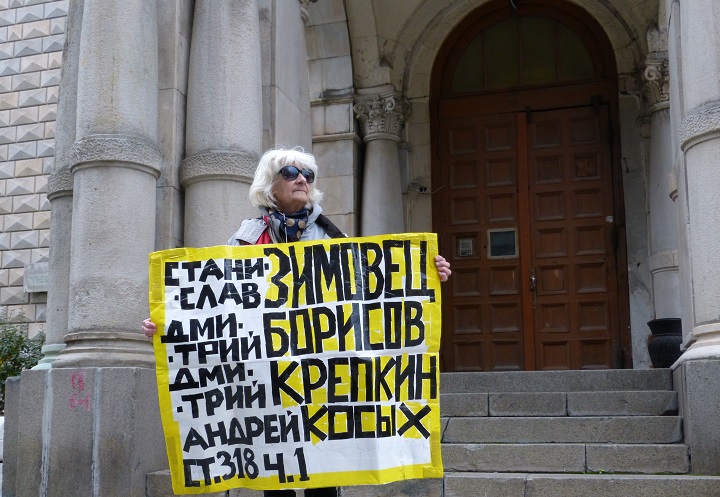 СТАНИ·
·СЛАВ ЗИМОВЕЦ
ДМИ·
·ТРИЙ БОРИСОВ
ДМИ·
·ТРИЙ КРЕПКИН
АНДРЕЙ КОСЫХ
СТ.318 Ч.1